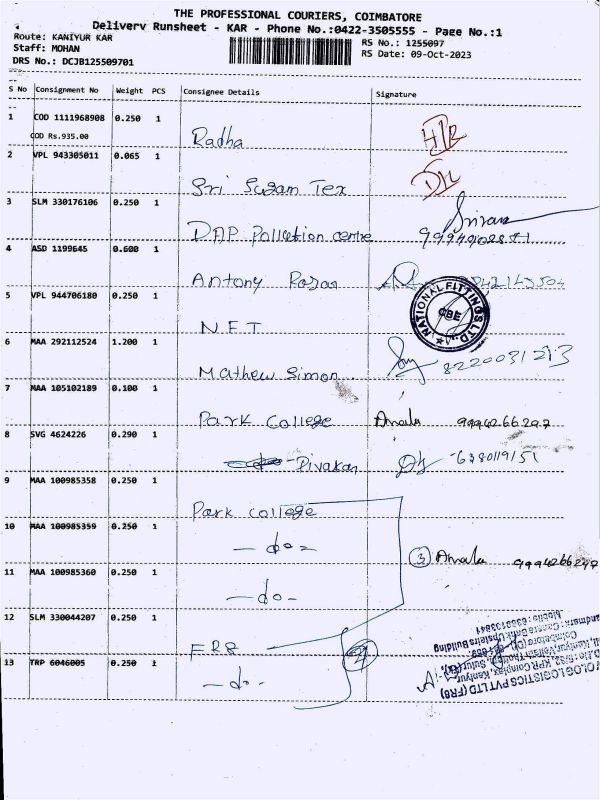 THE PROFESSIONAL COURIERS, COIMBATORE
Delivery Runsheet - KAR - Phone No.:0422-3505555 - Page No.:1
Route: KANIYUR KAR
RS No.: 1255097
Staff: MOHAN
RS Date: 09-Oct-2023
DRS No.: DCJB125509701
S No Consignment No Weight PCS Consignee Details Signature
1 COD 1111968908 0.250 1
COD Rs.935.00
Radha
2 VPL 943305011 0.065 1
Sri Tex
3 SLM 330176106 0.250 1
DAP Pollution centre
4 ASD 1199645 0.600 1
Antony
5 VPL 944706180 0.250 1
NATIONAL FITTINGS LTD
CBE
N.F.T
6 MAA 292112524 1.200 1
Mathew Simon 8220031213
7 MAA 105102189 0.100 1
Park College Amala 9994266297
8 SVG 4624226 0.290 1
Divakan
9 MAA 100985358 0.250 1
Park College
10 MAA 100985359 0.250 1
-do-
3 Amala 9994266297
11 MAA 100985360 0.250 1
-do-
12 SLM 330044207 0.250 1
FR8
2
13 TRP 6046005 0.250 1
-do-
LOGISTICS PVT LTD (FR8)